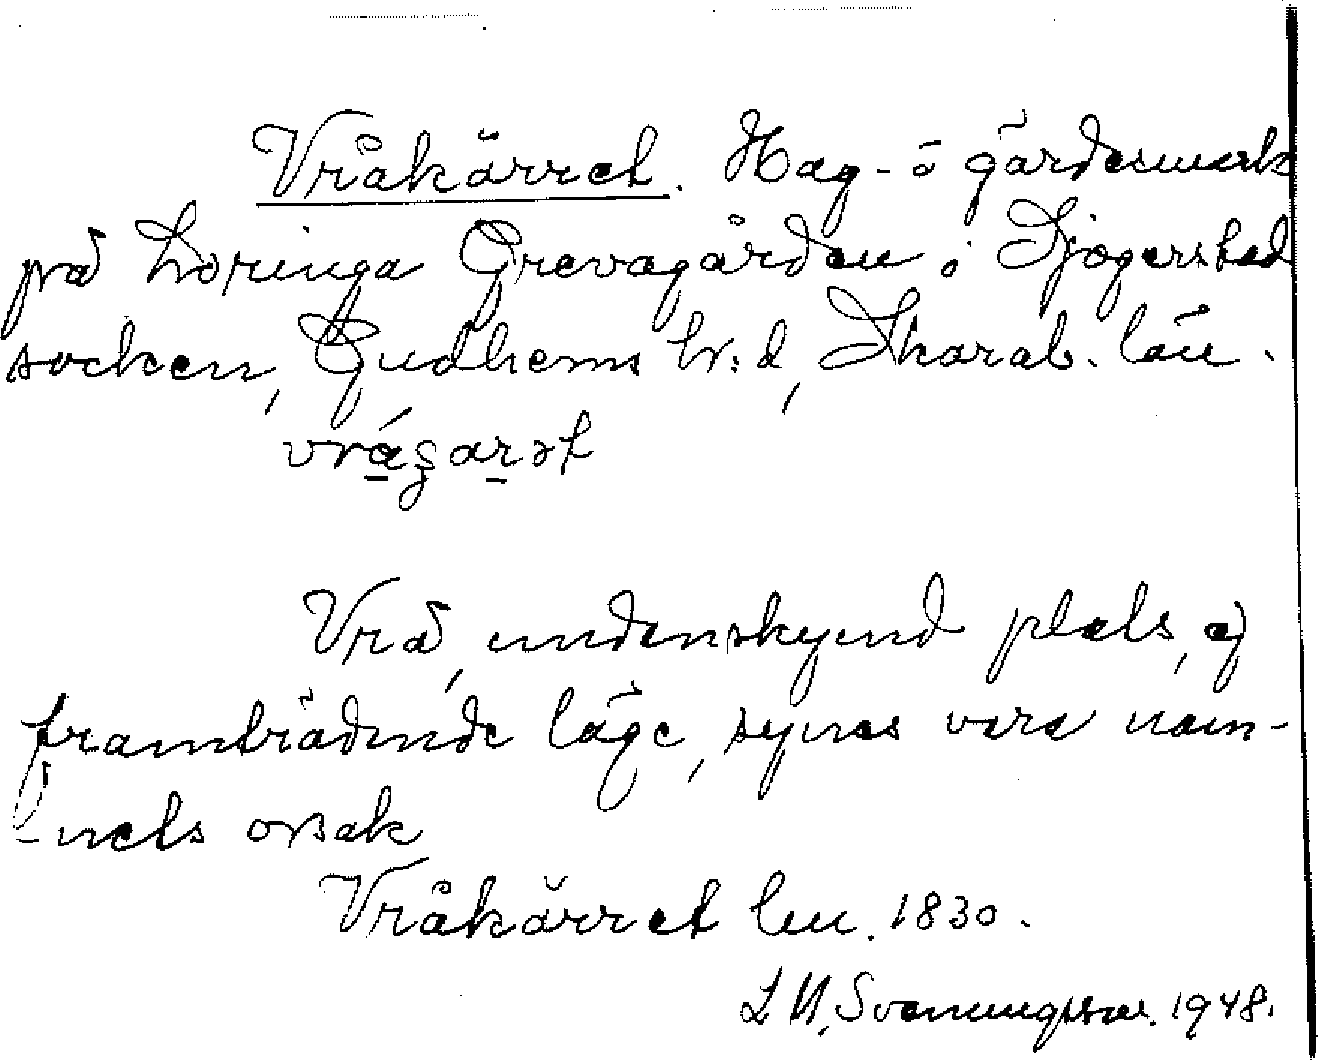 Vråkärret. Hag- o gärdesmark
på Loringa Grevagården i Sjogerstad
socken, Gudhems hr:d, Skarab. län.
vrágarət
Vrå, undanskymd plats, ej
framträdande läge, synes vara nam-
nets orsak
Vråkärret lm. 1830.
L M. Svenungsson. 1948.